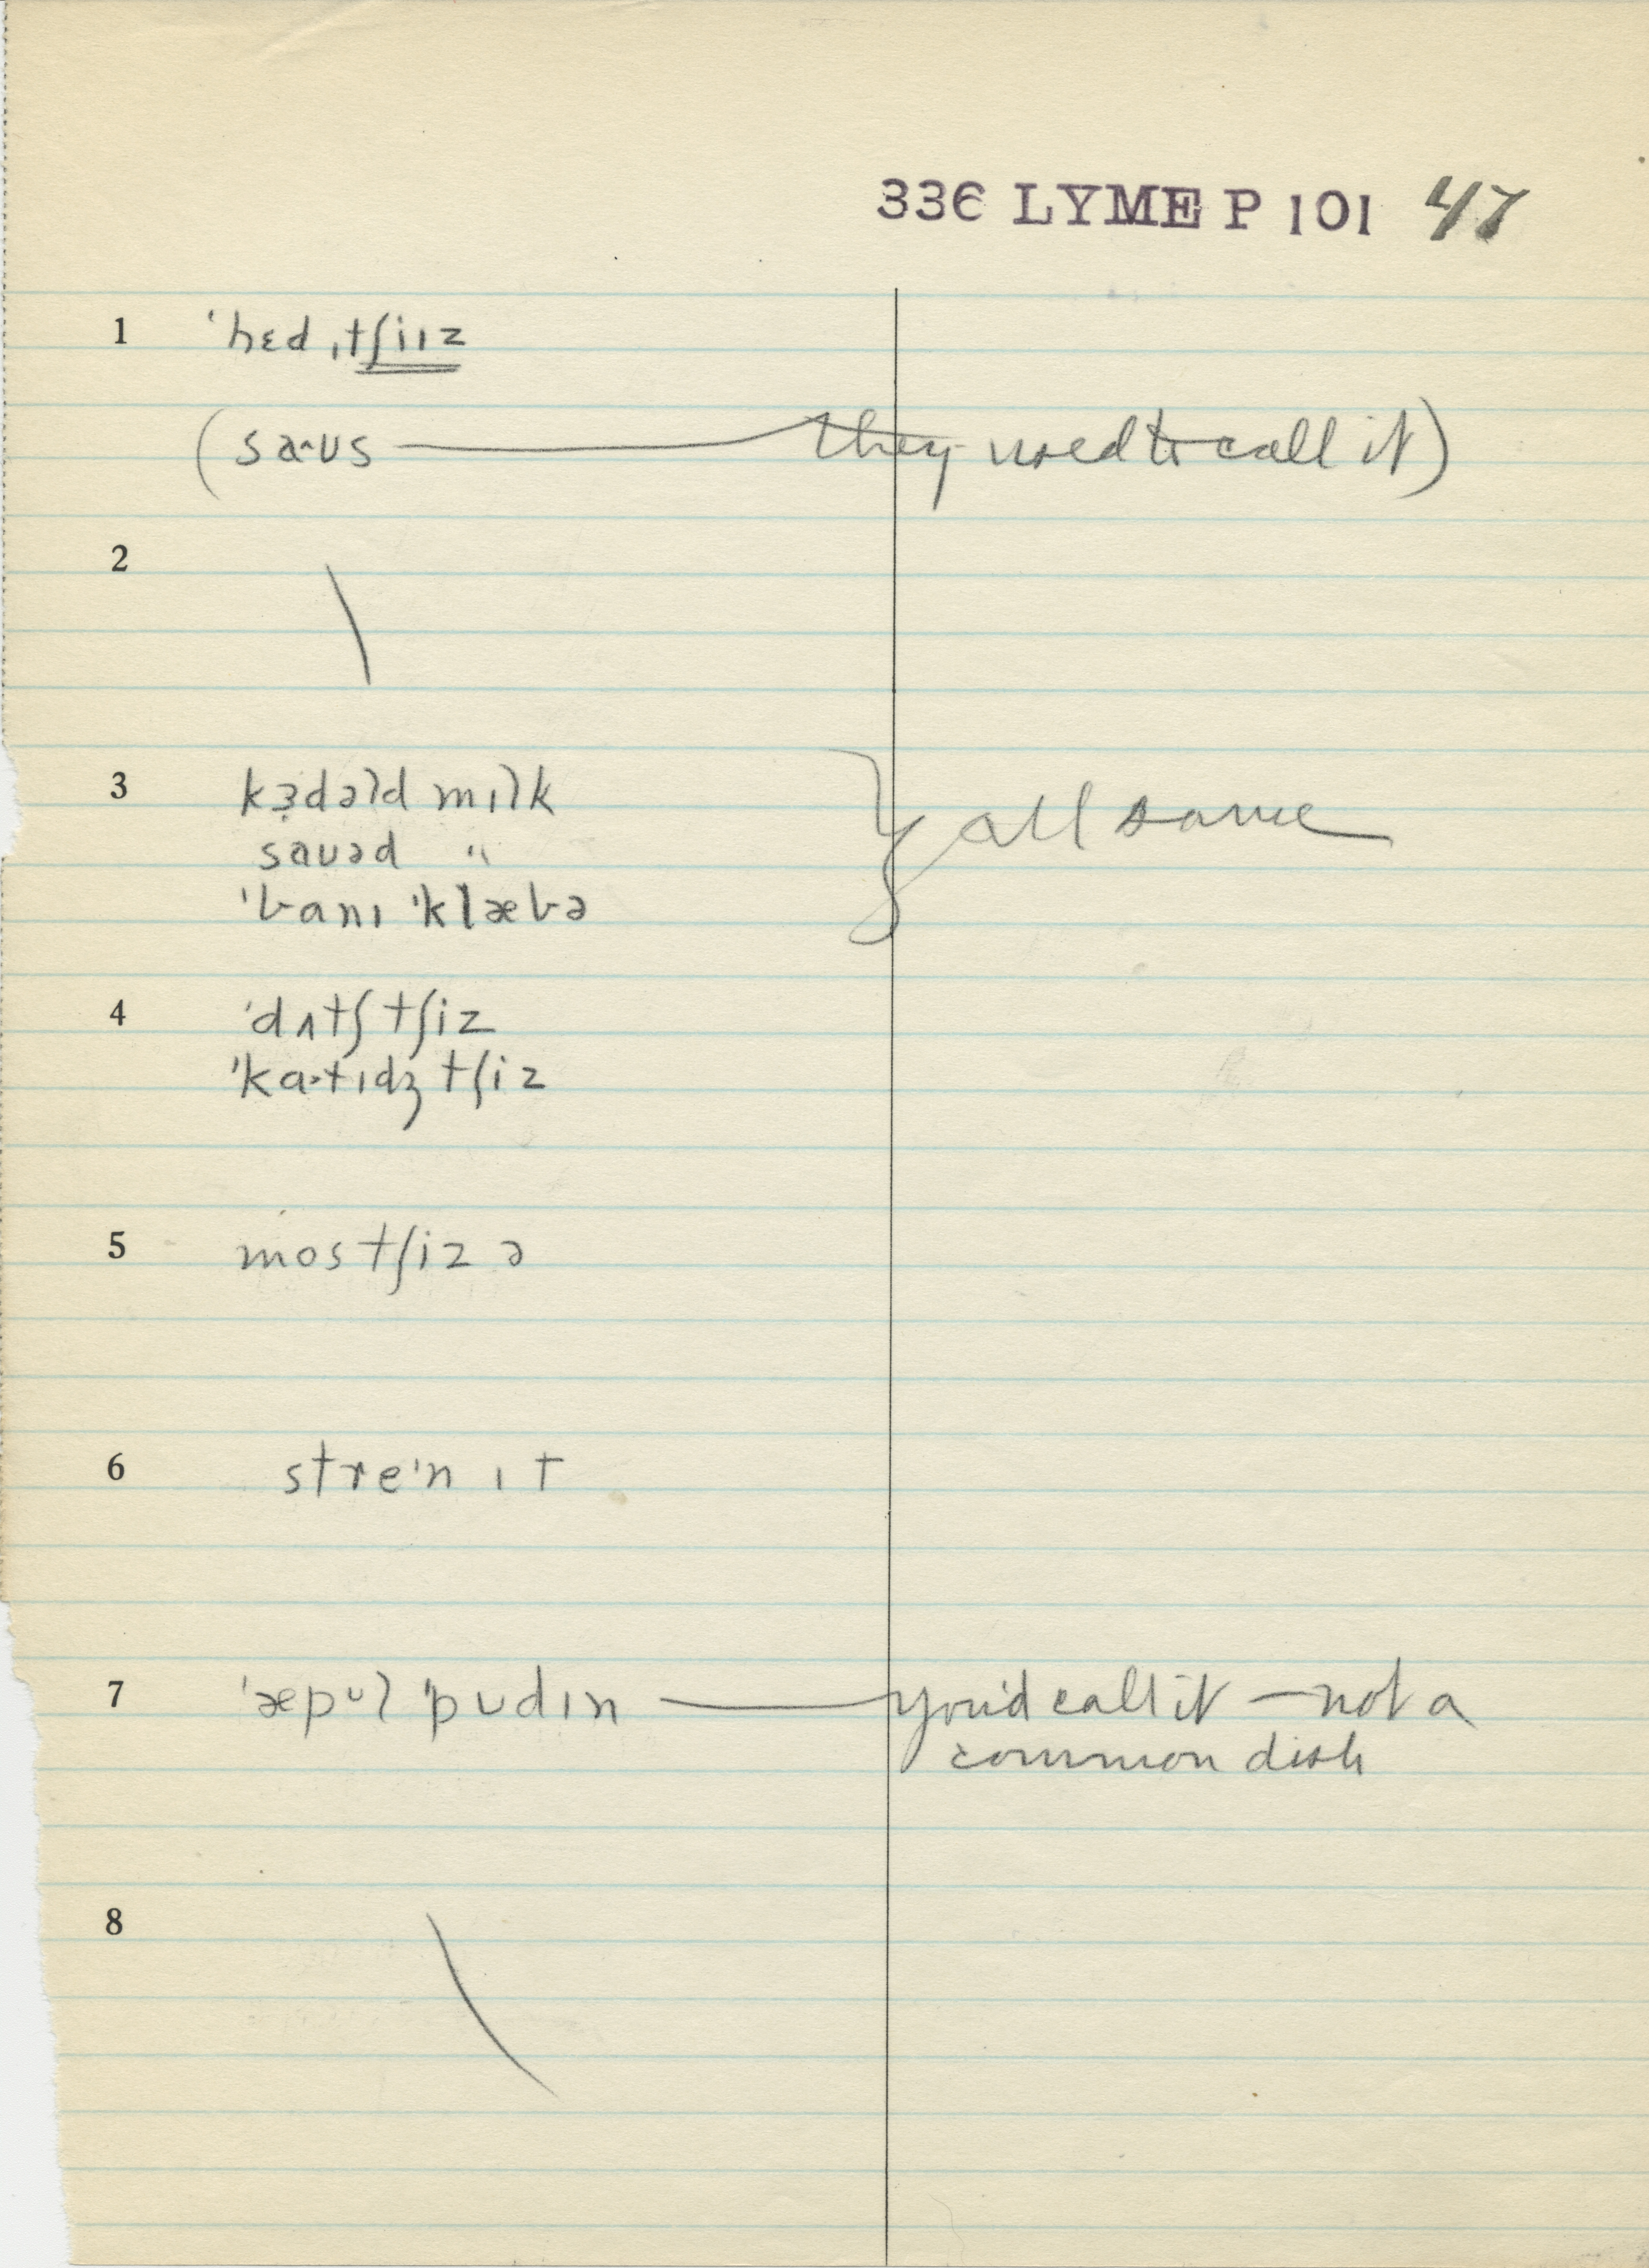 336 LYME P 101 47
1 ˈhɛdˌtʃiɪz
(sa·ʊs — they used to call it)
2
3 kɜ̣dəld mɪlk } all same
saʊəd "
ˈbanɪ ˈklæbə
4 ˈdʌtʃ tʃiz
ˈka·tɪdʒ tʃiz
5 mos tʃiz ə
6 streˈn ɪt
7 ˈæpʊl ˈpʊdɪn — you'd call it — not a
common dish
8